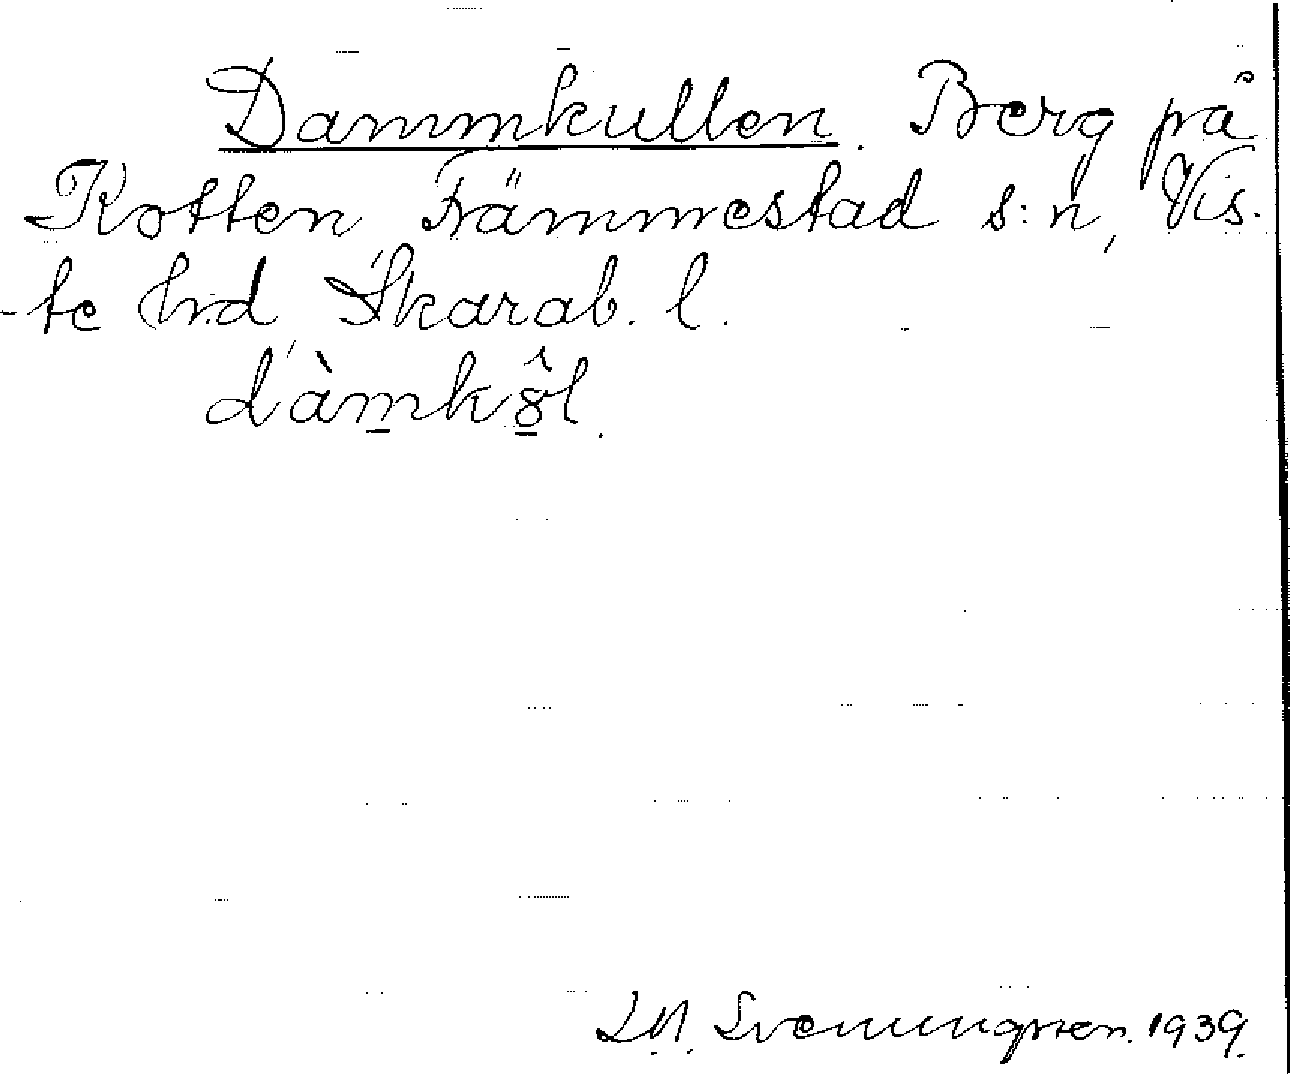 Dammkullen. Berg på
Kotten, Främmestad s:n, Vis-
-te hrd Skarab. l.
dàmk8̂l.
Svenungsson. 1939.